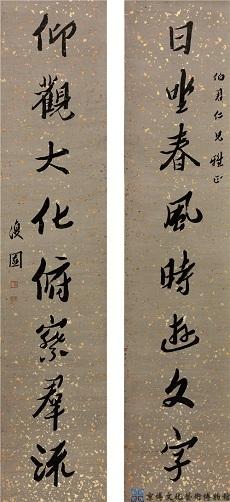 伯君仁兄雅正
日坐春風時遊文字
仰觀大化俯察羣流
復園
京博文化藝術博物館